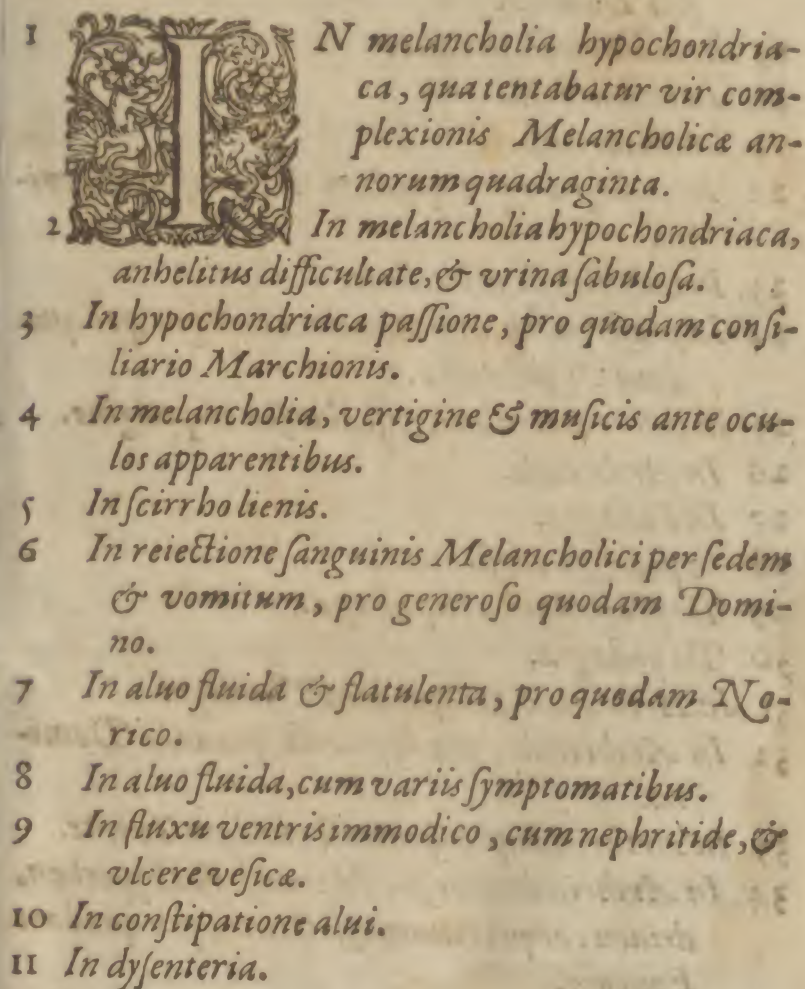 1 IN melancholia hypochondria-
ca, qua tentabatur vir com-
plexionis Melancholicæ an-
norum quadraginta.
2 In melancholia hypochondriaca,
anhelitus difficultate, & vrina ſabuloſa.
3 In hypochondriaca paſſione, pro quodam conſi-
liario Marchionis.
4 In melancholia, vertigine & muſicis ante ocu-
los apparentibus.
5 In ſcirrho lienis.
6 In reiectione ſanguinis Melancholici per ſedem
& vomitum, pro generoſo quodam Domi-
no.
7 In aluo fluida & flatulenta, pro quodam No-
rico.
8 In aluo fluida, cum variis ſymptomatibus.
9 In fluxu ventris immodico, cum nephritide, &
vlcere veſicæ.
10 In conſtipatione alui.
11 In dyſenteria.